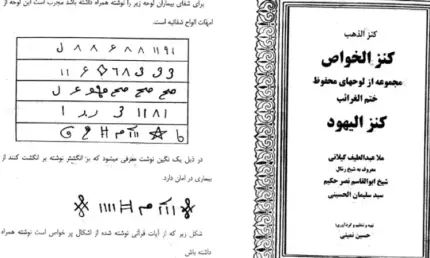 برای شفای بیماران لوحه زیر را نوشته همراه داشته باشد مجرب است این لوحه از
امهات الواح شفائیه است.
در ذیل یک نگین نوشت معرفی میشود که بر انگشتر نوشته بر انگشت کنند از
بیماری در امان دارد.
شکل زیر که از آیات قرآنی نوشته شده از اشکال پر خواص است نوشته همراه
داشته باش
کنز الذهب
کنز الخواص
مجموعه از لوحهای محفوظ
ختم الغرائب
کنز الیهود
ملا عبداللطیف گیلانی
معروف به شیخ رمال
شیخ ابوالقاسم نصر حکیم
سید سلیمان الحسینی
تهیه و تنظیم و گردآوری:
حسین نمینی